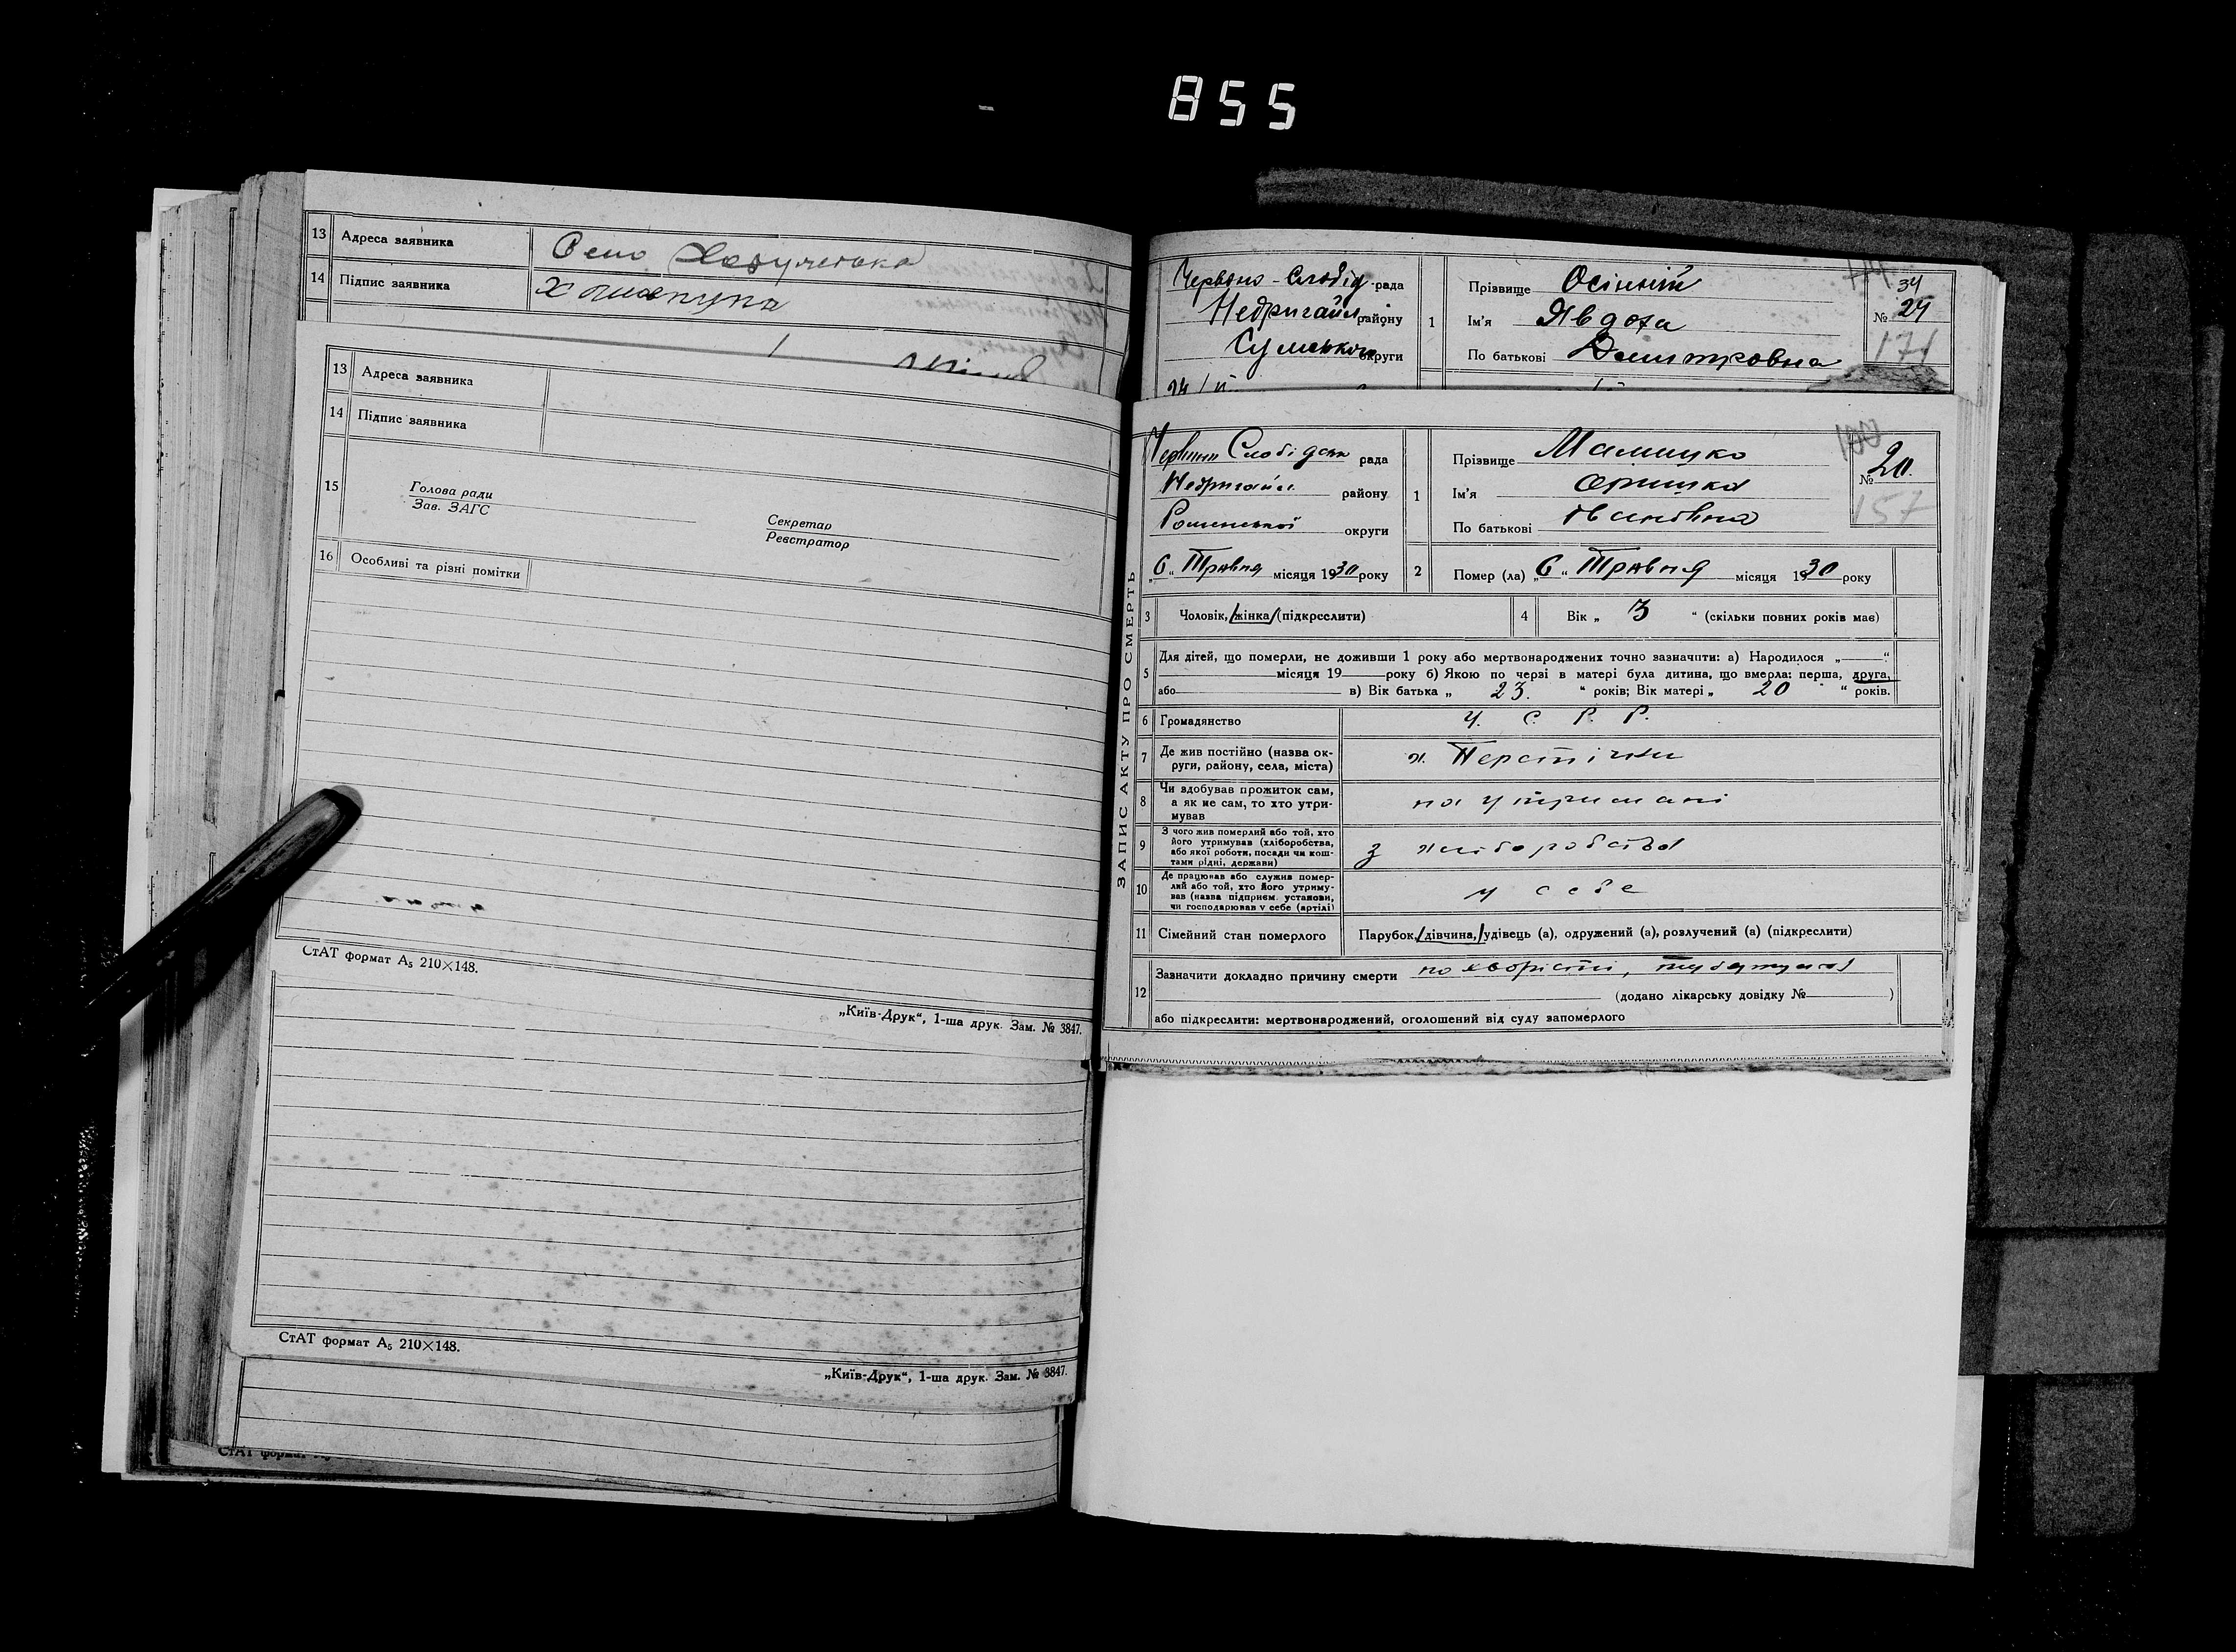 855
13 Адреса заявника Село
14 Підпис заявника
13 Адреса заявника
14 Підпис заявника
15 Голова ради
Зав. ЗАГС
Секретар
Реєстратор
16 Особливі та різні помітки
СтАТ формат А₅ 210×148.
„Київ-Друк“, 1-ша друк. Зам. № 3847.
СтАТ формат А₅ 210×148.
„Київ-Друк“, 1-ша друк. Зам. № 3847.
СтАТ формат
Червоно-Слобід. рада
Недригайл. району
Сумської округи
1 Прізвище Осінній
Ім'я Явдоха
По батькові Дмитровна
34
№ 24
171
ЗАПИС АКТУ ПРО СМЕРТЬ
Слобідська рада
Недригайл. району
Роменської округи
„6“ Травня місяця 1930 року
1 Прізвище Малишко
Ім'я Оришка
По батькові Івановна
№ 20.
157
2 Помер (ла) „6“ Травня місяця 1930 року
3 Чоловік, /жінка/ (підкреслити)
4 Вік „ 3 “ (скільки повних років має)
5 Для дітей, що померли, не доживши 1 року або мертвонароджених точно зазначити: а) Народилося „ “
місяця 19 року б) Якою по черзі в матері була дитина, що вмерла: перша, друга,
або в) Вік батька „ 23. “ років; Вік матері „ 20 “ років.
6 Громадянство У. С. Р. Р.
7 Де жив постійно (назва ок-
руги, району, села, міста) х.
8 Чи здобував прожиток сам,
а як не сам, то хто утри-
мував на утримані
9 З чого жив померлий або той, хто
його утримував (хліборобства,
або якої роботи, посади чи кош-
тами рідні, держави) з хліборобства
10 Де працював або служив помер-
лий або той, хто його утриму-
вав (назва підприєм. установи,
чи господарював у себе (артілі) у себе
11 Сімейний стан померлого Парубок, /дівчина,/ удівець (а), одружений (а), розлучений (а) (підкреслити)
12 Зазначити докладно причину смерти по хворісті,
(додано лікарську довідку № )
або підкреслити: мертвонароджений, оголошений від суду запомерлого